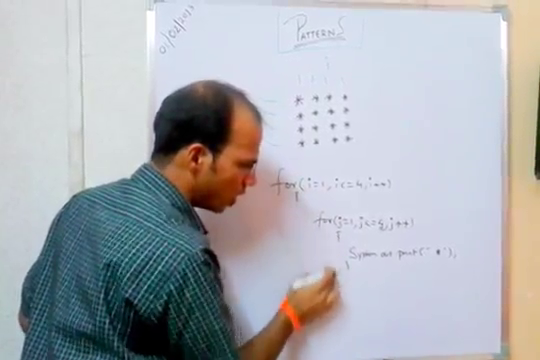 01/02/2013
PATTERNS
* * * *
* * * *
* * * *
* * * *
for(i=1, i<=4, i++)
{
for(j=1, j<=4, j++)
{
System out print("*");